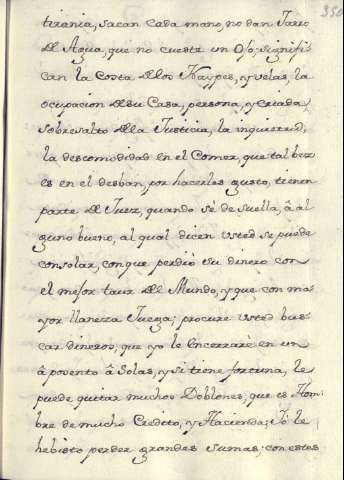 350
tirania, sacan cada mano, no dan Jarro
de Agua, que no cueste un ojo, signifi
can la Costa de los Naypes, y velas, la
ocupacion de su Casa, persona, y Criados,
sobresalto de la Justicia, la inquietud,
la descomodidad en el Comer, que tal bez
es en el desban, por hacerles gusto, tienen
parte de Juez, quando sé de suella, â al
guno bueno, al qual dicen Usted se puede
consolar, con que perdiò su dinero con
el mejor taur del Mundo, y que con ma
yor llaneza Juega; procure Usted bus
car dineros, que yo le Encerrarè en un
âposento â Solas, y si tiene fortuna, le
puede quitar muchos Doblones, que es Hom
bre de mucho Credito, y Hacienda; Jo le
hê bisto perder grandes sumas; con estas